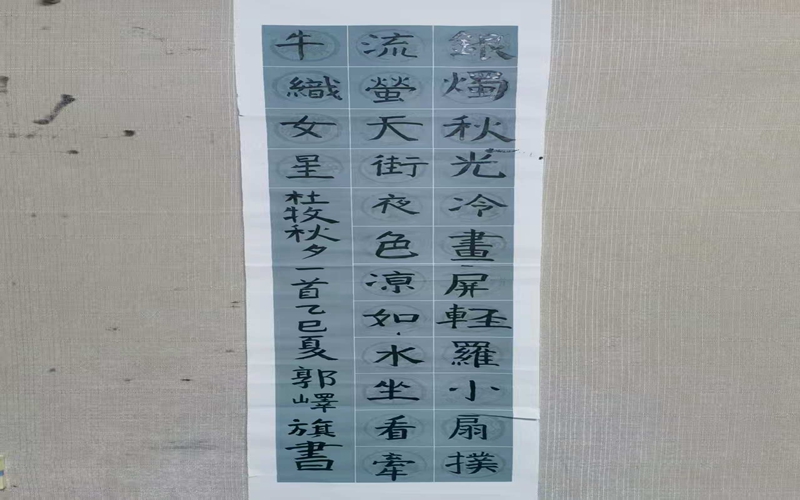 銀燭秋光冷畫屏輕羅小扇撲
流螢天街夜色凉如水坐看牽
牛織女星杜牧秋夕一首乙巳夏郭嶧旗書